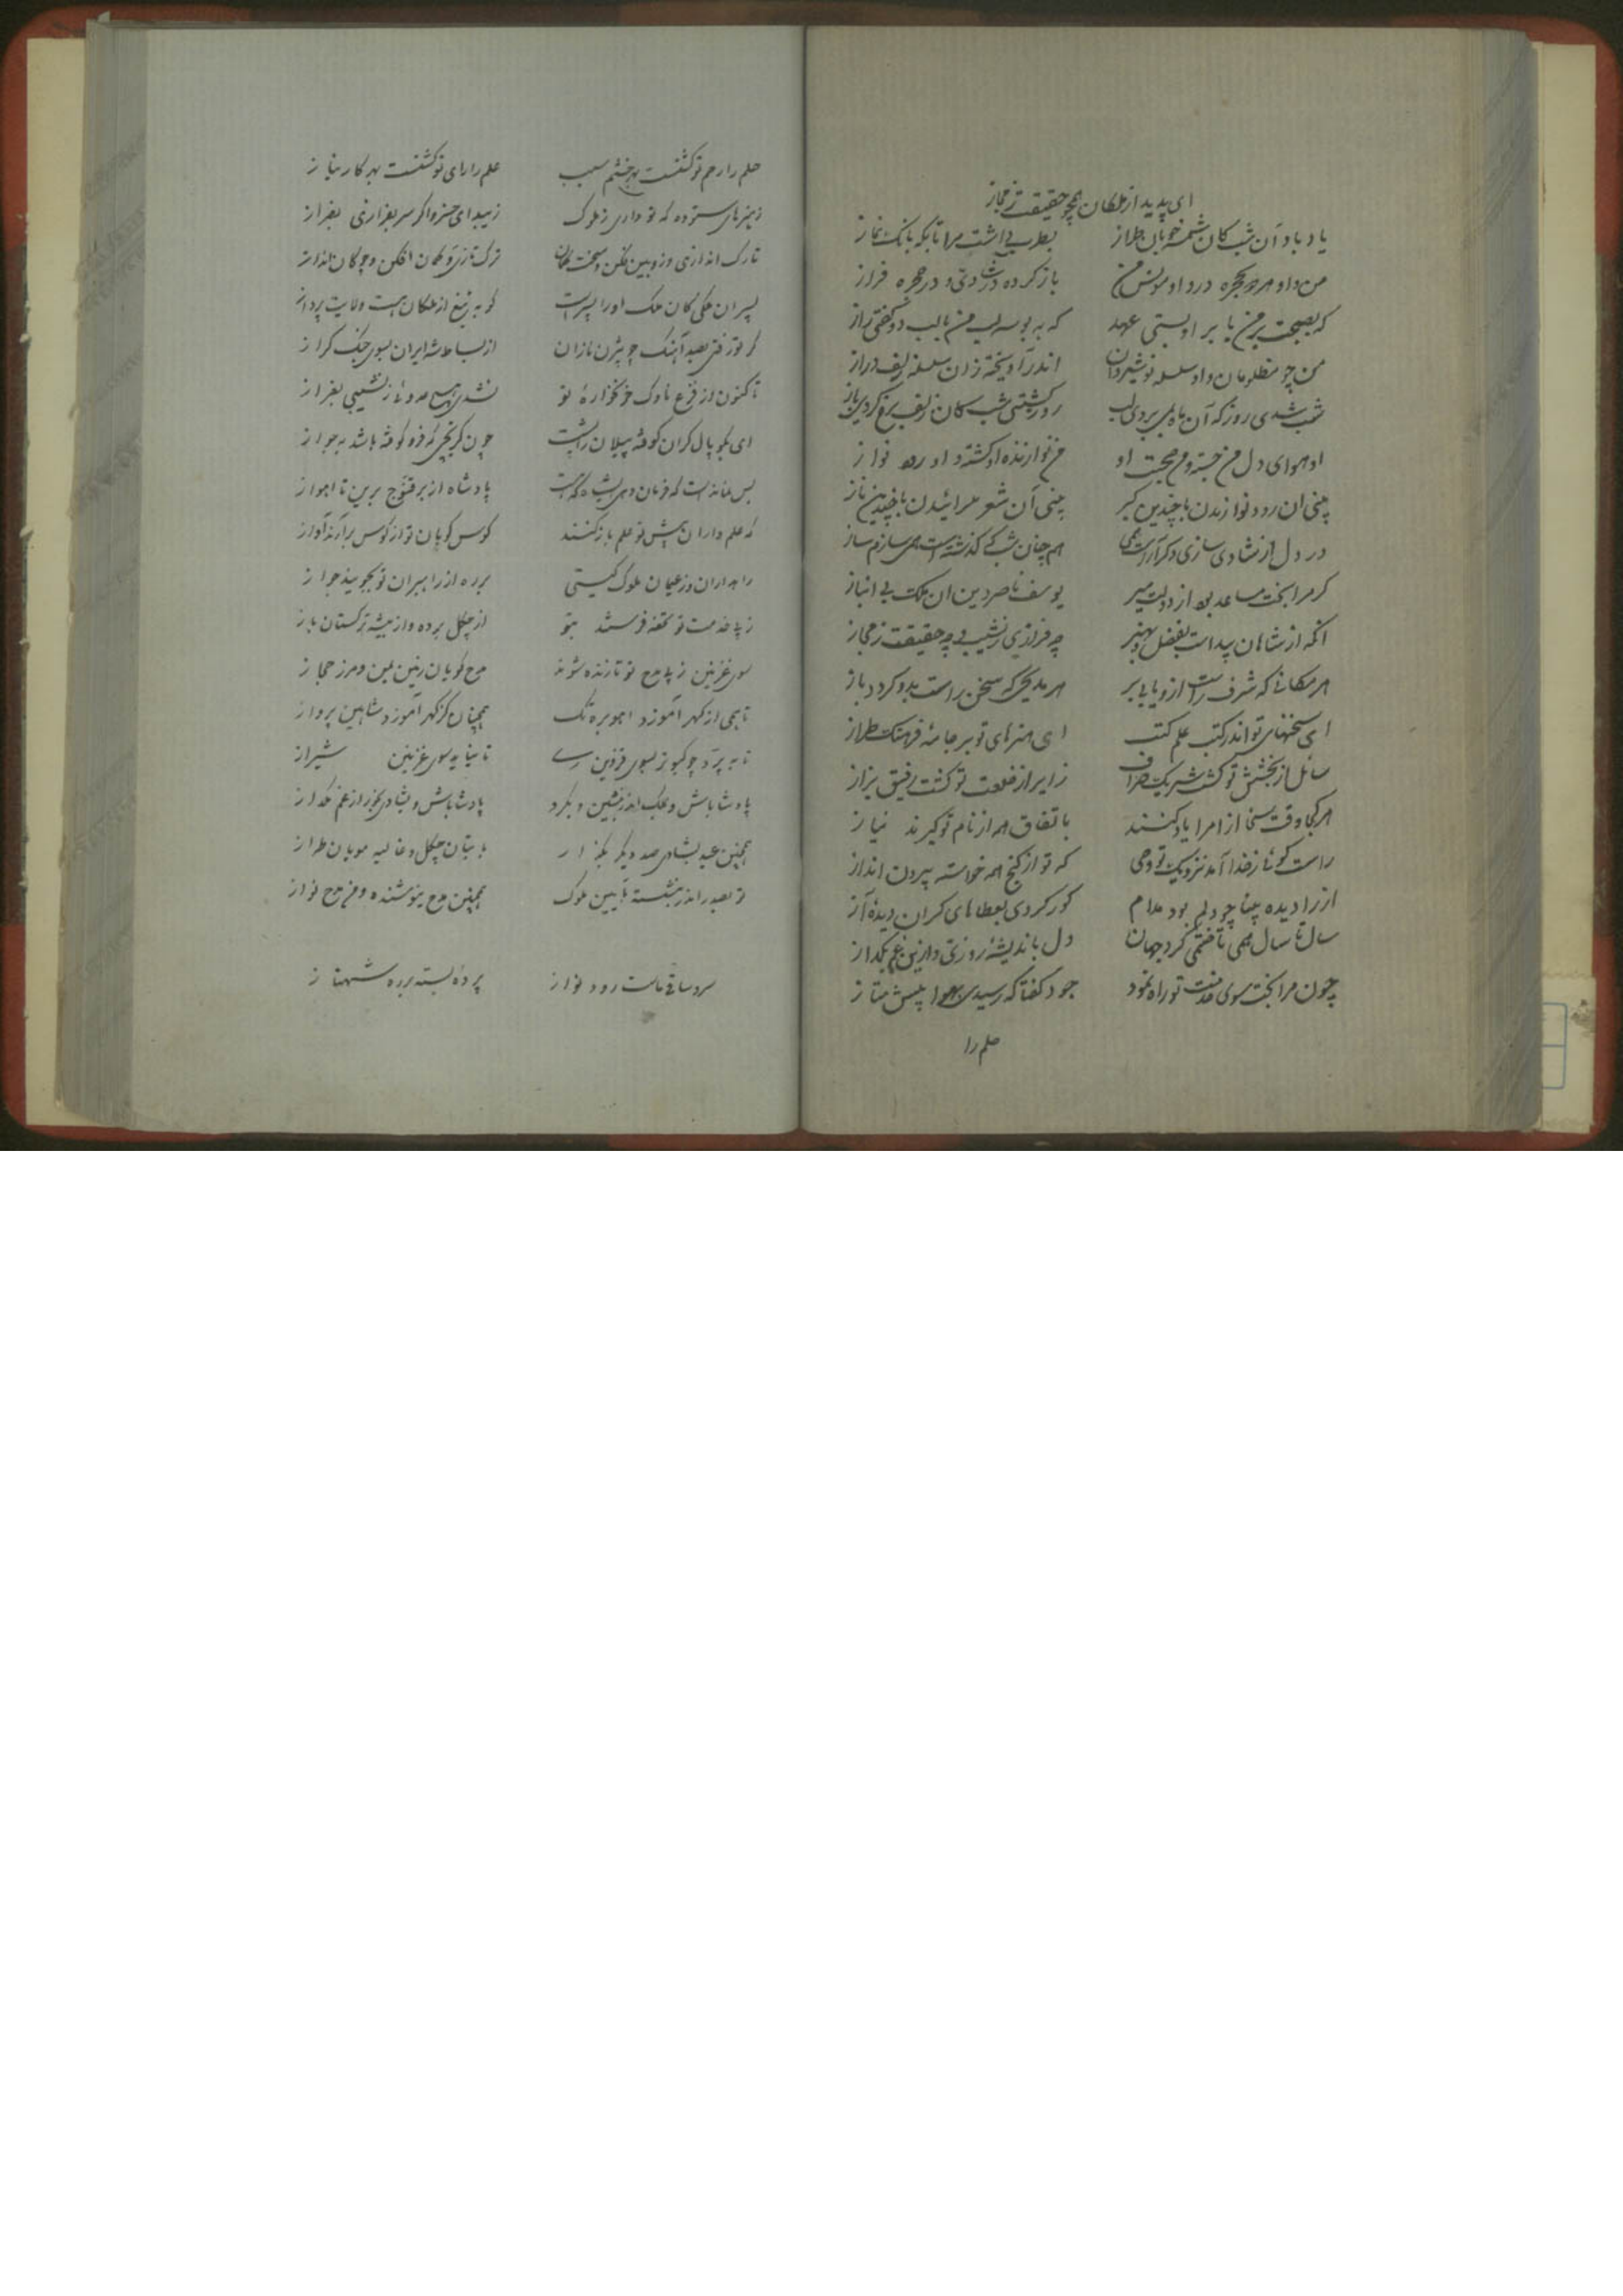 ای پدید از ملکان همچو حقیقت ز مجاز
یاد باد آن شب کان شمسه خوبان طراز بطرب داشت مرا تا بگه بانک نماز
من و او هر دو بحجره در و او مونس من باز کرده در شادی و در حجره فراز
که بصحبت بر من با بر او بستی عهد که به بوسه لب من با لب او گفتی راز
من چو مظلومان و او سلسله نوشیروان اندر آویخته زان سلسله زلف دراز
شب شدی روز که آن ماه برخ بردی لب روز کشتی شب کان زلف برخ کردی باز
او هوای دل من جسته و من صحبت او من نوازنده او کشته و او رود نواز
بینی آن رود نوازیدن با چندین کبر بینی آن شعر سرائیدن با چندین ناز
در دل از شادی سازی دکر آراست همی هم چنان شب که گذشتست همی سازم ساز
کر مرا بخت مساعد بود از دولت میر یوسف ناصر دین آن ملک بی انباز
آنکه از شاهان پیداست بفضل و بهنر چه فرازی ز نشیبی چه حقیقت ز مجاز
هر مکانی که شرف راست از او یابی بر هر مدیحی که سخن راست بدو کردد باز
ای سخنهای تو اندر کتب علم کتب ای هنرهای تو بر جامه فرهنگ طراز
سائل از بخشش تو کشت شریک صراف زایر از خلعت تو کشت رفیق بزاز
هر کجا وقت سخا از امرا یاد کنند باتفاق همه از نام تو کیرند نیاز
راست کوئی ز خدا آمد نزدیک تو وحی که تو از کنج همه خواسته بیرون انداز
آز را دیده بینا چو دلم بود مدام کور کردی بعطاهای کران دیده آز
سال تا سال همی تاختمی کرد جهان دل باندیشه روزی و از این غم بکداز
چون مرا بخت سوی خدمت تو راه نمود جود گفتا که رسیدی بهوا بیش متاز
حلم را
حلم را رحم تو کشتست بهر خشم سبب علم را رای تو کشتست بهر کار نیاز
زین هنرهای ستوده که تو داری ز ملوک زیبد ای خسرو اکر سر بفرازی بفراز
تارک اندازی و زوبین فکن و سخت کمان ترک تازی و کمان افکن و چوکان انداز
پسر آن ملکی کان ملک او را پسر است کو به تیغ از ملکان هست ولایت پرداز
گر تو رفتی بصید آهنک چو بیژن تازان از بساط شه ایران بسوی جنک کراز
تا کنون از فزع ناوک خونخواره تو نشدی هیچ کدوئی ز نشیبی بفراز
ای بکوپال کران کوفته پیلان را پشت چون کرنجی که فرو کوفته باشد به جواز
بس نمانده است که فرمان دهد آن شاه که هست پادشاه از بر قنوج برین تا اهواز
که علم داران پیش تو علم باز کنند کوس کوبان تو از کوس برآرند آواز
راهداران و زعیمان ملوک کیتی بره از راهبران تو بجویند جواز
ز پی خدمت تو تحفه فرستند بتو از چکل برده و از بیشه ترکستان باز
سوی غزنین ز پی مدح تو تازنده شوند مدح کویان زمین یمن و مرز حجاز
تا همی از کهر آموزد آهو بره تک همچنان کز کهر آموزد شاهین پرواز
تا به پرد چو کبوتر بسوی قزوین ری تا بیاید سوی غزنین شیراز
پادشا باش و بملک اندر بنشین و بکرد پادشا باش و بشادی بخور از غم مکداز
همچنین عید بشادی صد دیکر بکذار با بتان چکل و غالیه مویان طراز
تو بصدر اندر بنشسته بآیین ملوک همچنین مدح نیوشنده و من مدح نواز
سرو ساقی ماست رود نواز پرده بسته بره شهناز